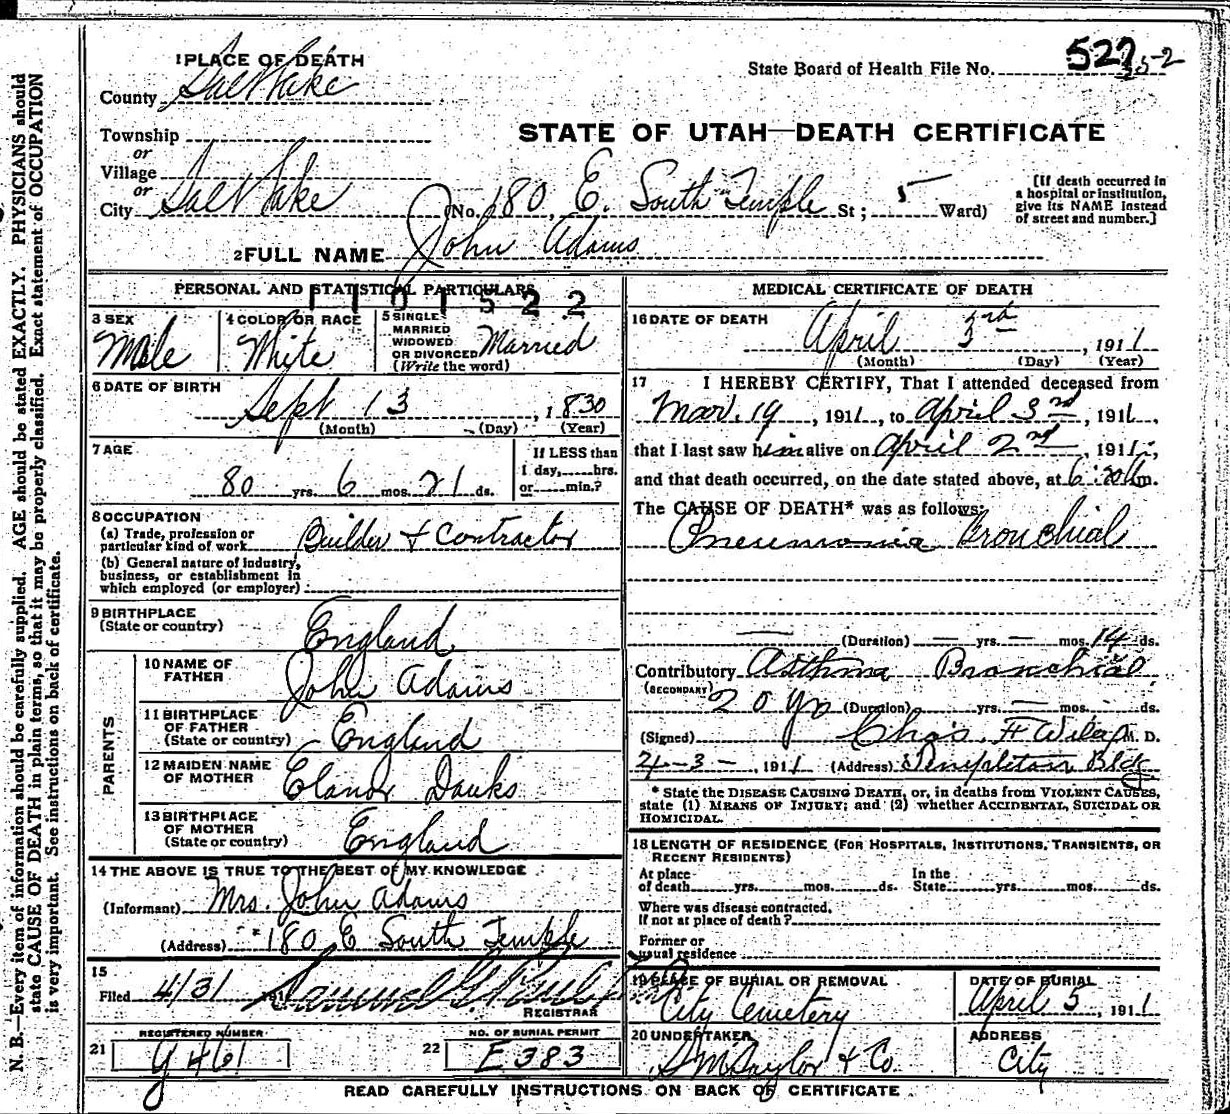 527
35-2
State Board of Health File No.
1 PLACE OF DEATH
County Salt Lake
STATE OF UTAH—DEATH CERTIFICATE
Township
or
Village
or
City Salt Lake (No. 180 E. South Temple St; 5 Ward)
[If death occurred in a hospital or institution, give its NAME instead of street and number.]
2 FULL NAME John Adams
PERSONAL AND STATISTICAL PARTICULARS
1101522
3 SEX
Male
4 COLOR OR RACE
White
5 SINGLE
MARRIED
WIDOWED
OR DIVORCED
(Write the word)
Married
6 DATE OF BIRTH
Sept 13, 1830
(Month) (Day) (Year)
7 AGE
80 yrs. 6 mos. 21 ds.
If LESS than
1 day,......hrs.
or......min.?
8 OCCUPATION
(a) Trade, profession or
particular kind of work Builder + Contractor
(b) General nature of industry,
business, or establishment in
which employed (or employer)
9 BIRTHPLACE
(State or country)
England
PARENTS
10 NAME OF
FATHER
John Adams
11 BIRTHPLACE
OF FATHER
(State or country)
England
12 MAIDEN NAME
OF MOTHER
Elanor Danks
13 BIRTHPLACE
OF MOTHER
(State or country)
England
14 THE ABOVE IS TRUE TO THE BEST OF MY KNOWLEDGE
(Informant) Mrs. John Adams
(Address) 180 E South Temple
15
Filed 4/3 191
REGISTRAR
REGISTERED NUMBER
21 G 461
NO. OF BURIAL PERMIT
22 E 383
MEDICAL CERTIFICATE OF DEATH
16 DATE OF DEATH
April 3rd, 1911
(Month) (Day) (Year)
17 I HEREBY CERTIFY, That I attended deceased from
Mar. 19, 1911, to April 3rd, 1911,
that I last saw him alive on April 2nd, 1911,
and that death occurred, on the date stated above, at 6:20 m.
The CAUSE OF DEATH* was as follows:
Pneumonia Bronchial
(Duration) — yrs. — mos. 14 ds.
Contributory Asthma Bronchial
(SECONDARY)
20 yrs (Duration) yrs. — mos. ds.
(Signed) Chas F Wilcox M. D.
4-3-, 1911 (Address) Templeton Bldg
* State the DISEASE CAUSING DEATH, or, in deaths from VIOLENT CAUSES,
state (1) MEANS OF INJURY; and (2) whether ACCIDENTAL, SUICIDAL OR
HOMICIDAL.
18 LENGTH OF RESIDENCE (FOR HOSPITALS, INSTITUTIONS, TRANSIENTS, OR
RECENT RESIDENTS)
At place
of death......yrs.......mos.......ds.
In the
State......yrs.......mos.......ds.
Where was disease contracted,
if not at place of death?
Former or
usual residence
19 PLACE OF BURIAL OR REMOVAL
City Cemetery
DATE OF BURIAL
April 5, 1911
20 UNDERTAKER
S M Taylor & Co
ADDRESS
City
READ CAREFULLY INSTRUCTIONS ON BACK OF CERTIFICATE
N. B.—Every item of information should be carefully supplied. AGE should be stated EXACTLY. PHYSICIANS should
state CAUSE OF DEATH in plain terms, so that it may be properly classified. Exact statement of OCCUPATION
is very important. See instructions on back of certificate.